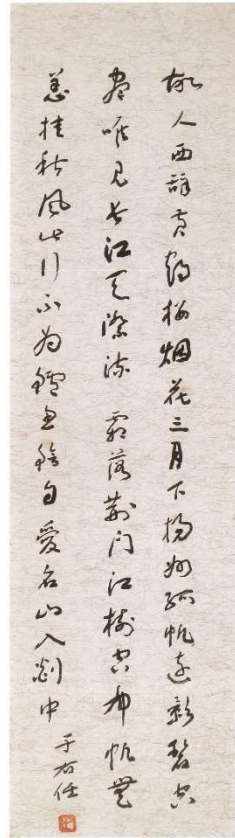 故人西辞黄鹤楼烟花三月下扬州孤帆远影碧空
尽唯见长江天际流 霜落荆门江树空布帆无
恙挂秋风此行不为鲈鱼鲙自爱名山入剡中
于右任